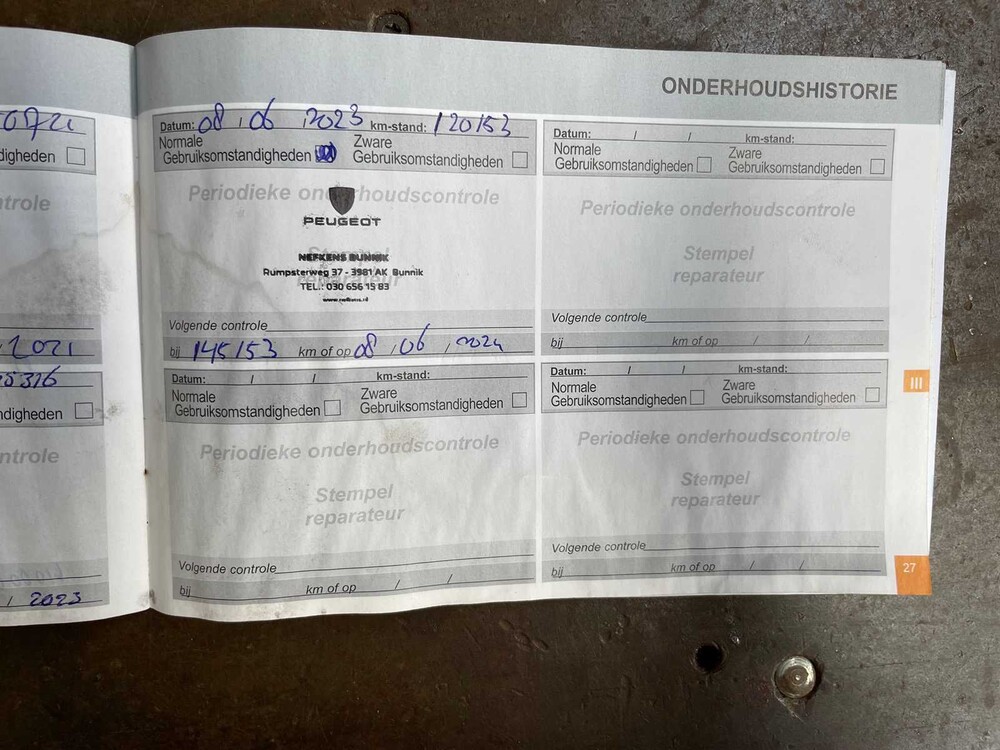 ONDERHOUDSHISTORIE
digheden
ntrole
2021
digheden
ntrole
/ 2023
Datum: 08 / 06 / 2023 km-stand: 120153
Normale Zware
Gebruiksomstandigheden Gebruiksomstandigheden
Periodieke onderhoudscontrole
PEUGEOT
Stempel
NEFKENS BUNNIK
Rumpsterweg 37 - 3981 AK Bunnik
reparateur
TEL.: 030 656 15 83
Volgende controle
bij 145153 km of op 08 / 06 / 2024
Datum: / / km-stand:
Normale Zware
Gebruiksomstandigheden Gebruiksomstandigheden
Periodieke onderhoudscontrole
Stempel
reparateur
Volgende controle
bij km of op / /
Datum: / / km-stand:
Normale Zware
Gebruiksomstandigheden Gebruiksomstandigheden
Periodieke onderhoudscontrole
Stempel
reparateur
Volgende controle
bij km of op / /
Datum: / / km-stand:
Normale Zware
Gebruiksomstandigheden Gebruiksomstandigheden
Periodieke onderhoudscontrole
Stempel
reparateur
Volgende controle
bij km of op / /
III
27